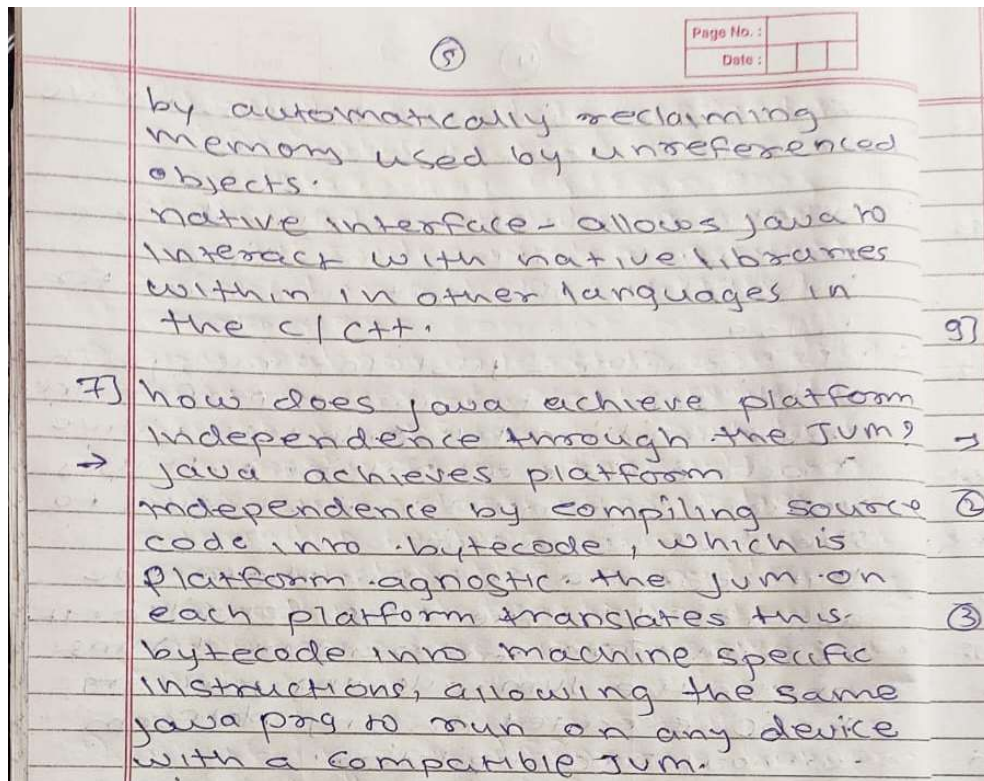 Page No. :
Date :
5
by automatically reclaiming
memory used by unreferenced
objects.
native interface - allows java to
interact with native libraries
within in other languages in
the c/c++.
9]
7] how does java achieve platform
independence through the JVM?
→ java achieves platform
independence by compiling source
②
code into bytecode, which is
platform agnostic. the jvm on
each platform translates this
③
bytecode into machine specific
instructions, allowing the same
java prg to run on any device
with a compatible JVM.